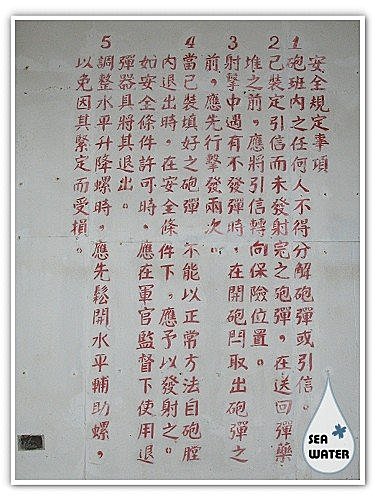 安全規定事項
1砲班內之任何人不得分解砲彈或引信。
2已裝定引信而未發射完之砲彈，在送回彈藥
堆之前，應將引信轉向保險位置。
3射擊中遇有不發彈時，在開砲閂取出砲彈之
前，應先行擊發兩次。
4當已裝填好之砲彈，不能以正常方法自砲膛
內退出時，在安全條件下，應予以發射之。
如安全條件許可時，應在軍官監督下使用退
彈器具將其退出。
5調整水平升降螺時，應先鬆開水平輔助螺，
以免因其緊定而受損。
SEA
WATER